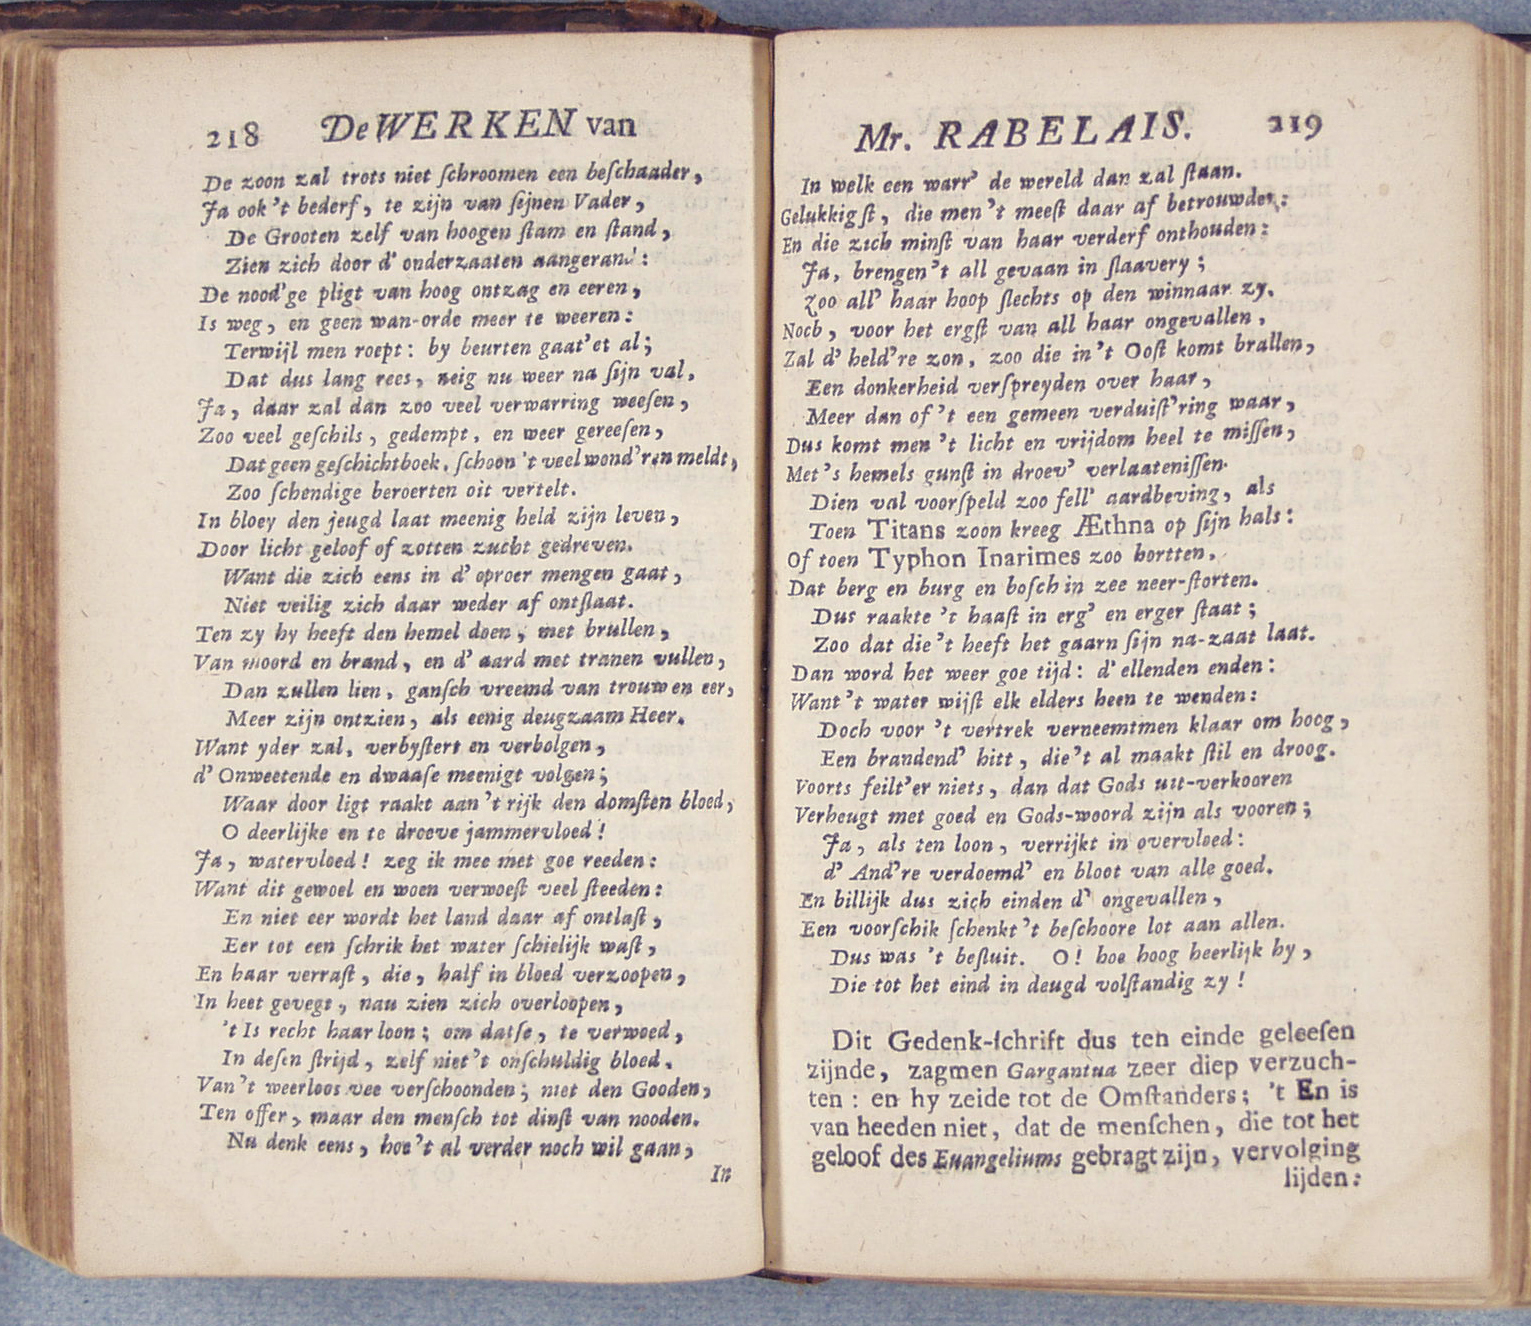 218 De WERKEN van
De zoon zal trots niet ſchroomen een beſchaader,
Ja ook 't bederf, te zijn van ſijnen Vader,
De Grooten zelf van hoogen ſtam en ſtand,
Zien zich door d' onderzaaten aangerand':
De nood'ge pligt van hoog ontzag en eeren,
Is weg, en geen wan-orde meer te weeren:
Terwijl men roept: by beurten gaat'et al;
Dat dus lang rees, neig nu weer na ſijn val.
Ja, daar zal dan zoo veel verwarring weeſen,
Zoo veel geſchils, gedempt, en weer gereeſen,
Dat geen geſchichtboek, ſchoon 't veel wond'ren meldt,
Zoo ſchendige beroerten oit vertelt.
In bloey den jeugd laat meenig held zijn leven,
Door licht geloof of zotten zucht gedreven.
Want die zich eens in d' oproer mengen gaat,
Niet veilig zich daar weder af ontſlaat.
Ten zy hy heeft den hemel doen, met brullen,
Van moord en brand, en d' aard met tranen vullen,
Dan zullen lien, ganſch vreemd van trouw en eer,
Meer zijn ontzien, als eenig deugzaam Heer.
Want yder zal, verbyſtert en verbolgen,
d' Onweetende en dwaaſe meenigt volgen;
Waar door ligt raakt aan 't rijk den domſten bloed,
O deerlijke en te droeve jammervloed!
Ja, watervloed! zeg ik mee met goe reeden:
Want dit gewoel en woen verwoeſt veel ſteeden:
En niet eer wordt het land daar af ontlaſt,
Eer tot een ſchrik het water ſchielijk waſt,
En haar verraſt, die, half in bloed verzoopen,
In heet gevegt, nau zien zich overloopen,
't Is recht haar loon; om datſe, te verwoed,
In deſen ſtrijd, zelf niet 't onſchuldig bloed.
Van 't weerloos vee verſchoonden; niet den Gooden,
Ten offer, maar den menſch tot dinſt van nooden.
Nu denk eens, hoe 't al verder noch wil gaan,
In
Mr. RABELAIS. 219
In welk een warr' de wereld dan zal ſtaan.
Gelukkigſt, die men 't meeſt daar af betrouwden:
En die zich minſt van haar verderf onthouden:
Ja, brengen 't all gevaan in ſlaavery;
Zoo all' haar hoop ſlechts op den winnaar zy.
Noch, voor het ergſt van all haar ongevallen,
Zal d' held're zon, zoo die in 't Ooſt komt brallen,
Een donkerheid verſpreyden over haar,
Meer dan of 't een gemeen verduiſt'ring waar,
Dus komt men 't licht en vrijdom heel te miſſen,
Met 's hemels gunſt in droev' verlaateniſſen.
Dien val voorſpeld zoo fell' aardbeving, als
Toen Titans zoon kreeg Æthna op ſijn hals:
Of toen Typhon Inarimes zoo hortten,
Dat berg en burg en boſch in zee neer-ſtorten.
Dus raakte 't haaſt in erg' en erger ſtaat;
Zoo dat die 't heeft het gaarn ſijn na-zaat laat.
Dan word het weer goe tijd: d' ellenden enden:
Want 't water wijſt elk elders heen te wenden:
Doch voor 't vertrek verneemtmen klaar om hoog,
Een brandend' hitt, die 't al maakt ſtil en droog.
Voorts feilt'er niets, dan dat Gods uit-verkooren
Verheugt met goed en Gods-woord zijn als vooren;
Ja, als ten loon, verrijkt in overvloed:
d' And're verdoemd' en bloot van alle goed.
En billijk dus zich einden d' ongevallen,
Een voorſchik ſchenkt 't beſchoore lot aan allen.
Dus was 't beſluit. O! hoe hoog heerlijk hy,
Die tot het eind in deugd volſtandig zy!
Dit Gedenk-ſchrift dus ten einde geleeſen
zijnde, zagmen Gargantua zeer diep verzuch-
ten: en hy zeide tot de Omſtanders; 't En is
van heeden niet, dat de menſchen, die tot het
geloof des Euangeliums gebragt zijn, vervolging
lijden: